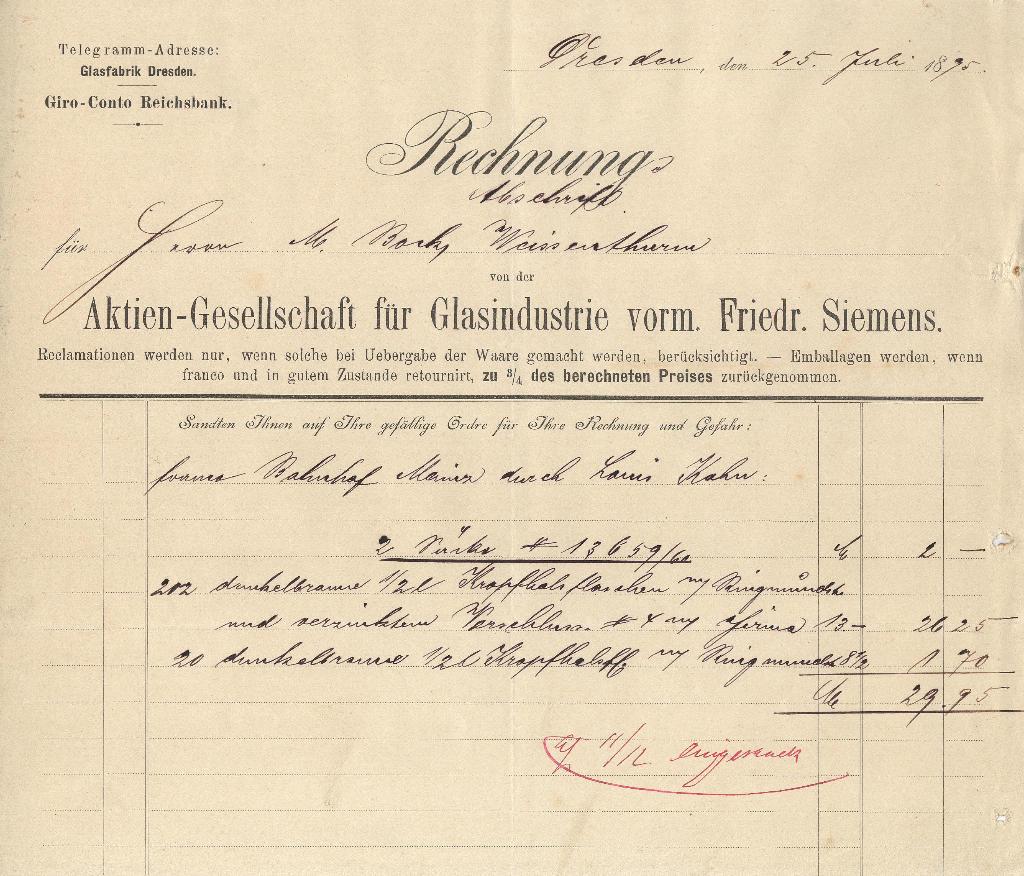 Telegramm-Adresse:
Glasfabrik Dresden.
Giro-Conto Reichsbank.
Dresden, den 25. Juli 1895.
Rechnung
Abschrift
für Herrn M. Bock, Weissenthurm
von der
Aktien-Gesellschaft für Glasindustrie vorm. Friedr. Siemens.
Reclamationen werden nur, wenn solche bei Uebergabe der Waare gemacht werden, berücksichtigt. — Emballagen werden, wenn
franco und in gutem Zustande retournirt, zu 3/4 des berechneten Preises zurückgenommen.
Sandten Ihnen auf Ihre gefällige Ordre für Ihre Rechnung und Gefahr:
franco Bahnhof Mainz durch Louis Kahn:
2 Säcke # 13659/60 2 —
202 dunkelbraune 1/2 l Kropfhalsflaschen m/ Ringmündg
und verzinktem Verschluss # 4 m/ Firma 13- 26 25
20 dunkelbraune 1/2 l Kropfhalsfl. m/ Ringmündg 8 1/2 1 70
M 29.95
11/12